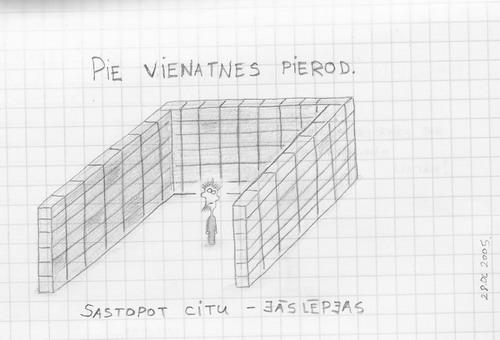 PIE VIENATNES PIEROD.
SASTOPOT CITU – JĀSLĒPJAS
2005.